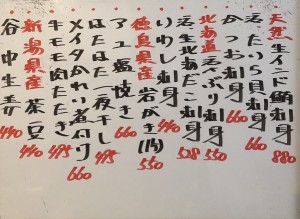 天然生インド鮪刺身 880
活たいら貝刺身 660
かつお刺身 660
北海道活つぶ刺身 550
活生北海だこ刺身 528
いわし刺身 440
徳島県産岩がき(1ケ) 550
アユ塩焼き 660
はたはた一夜干し 495
メイタかれい煮付け 660
牛モモ肉たたき 495
新潟県産茶豆 440
谷中生姜 440